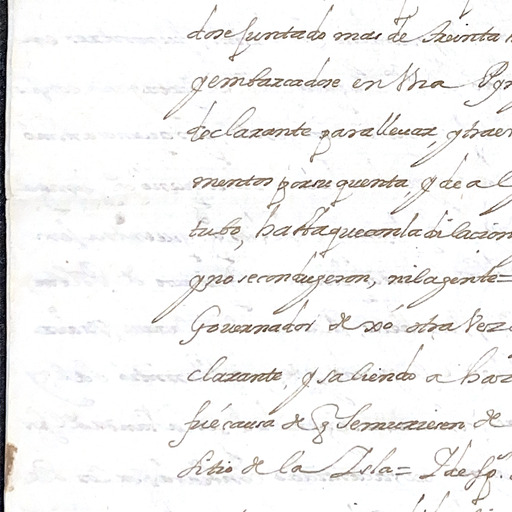 dose juntado mas de treinta
y embarcadose en Vna
declarante para lleuar, y traer
mentos por su quenta, y de a
tubo, hasta que con la dilacion
y no se condugeron, ni la gente=
Gouernador de otra Vez
clarante, y saliendo a haz
fué causa de q Se muriesen de
sitio de la Isla= Y de